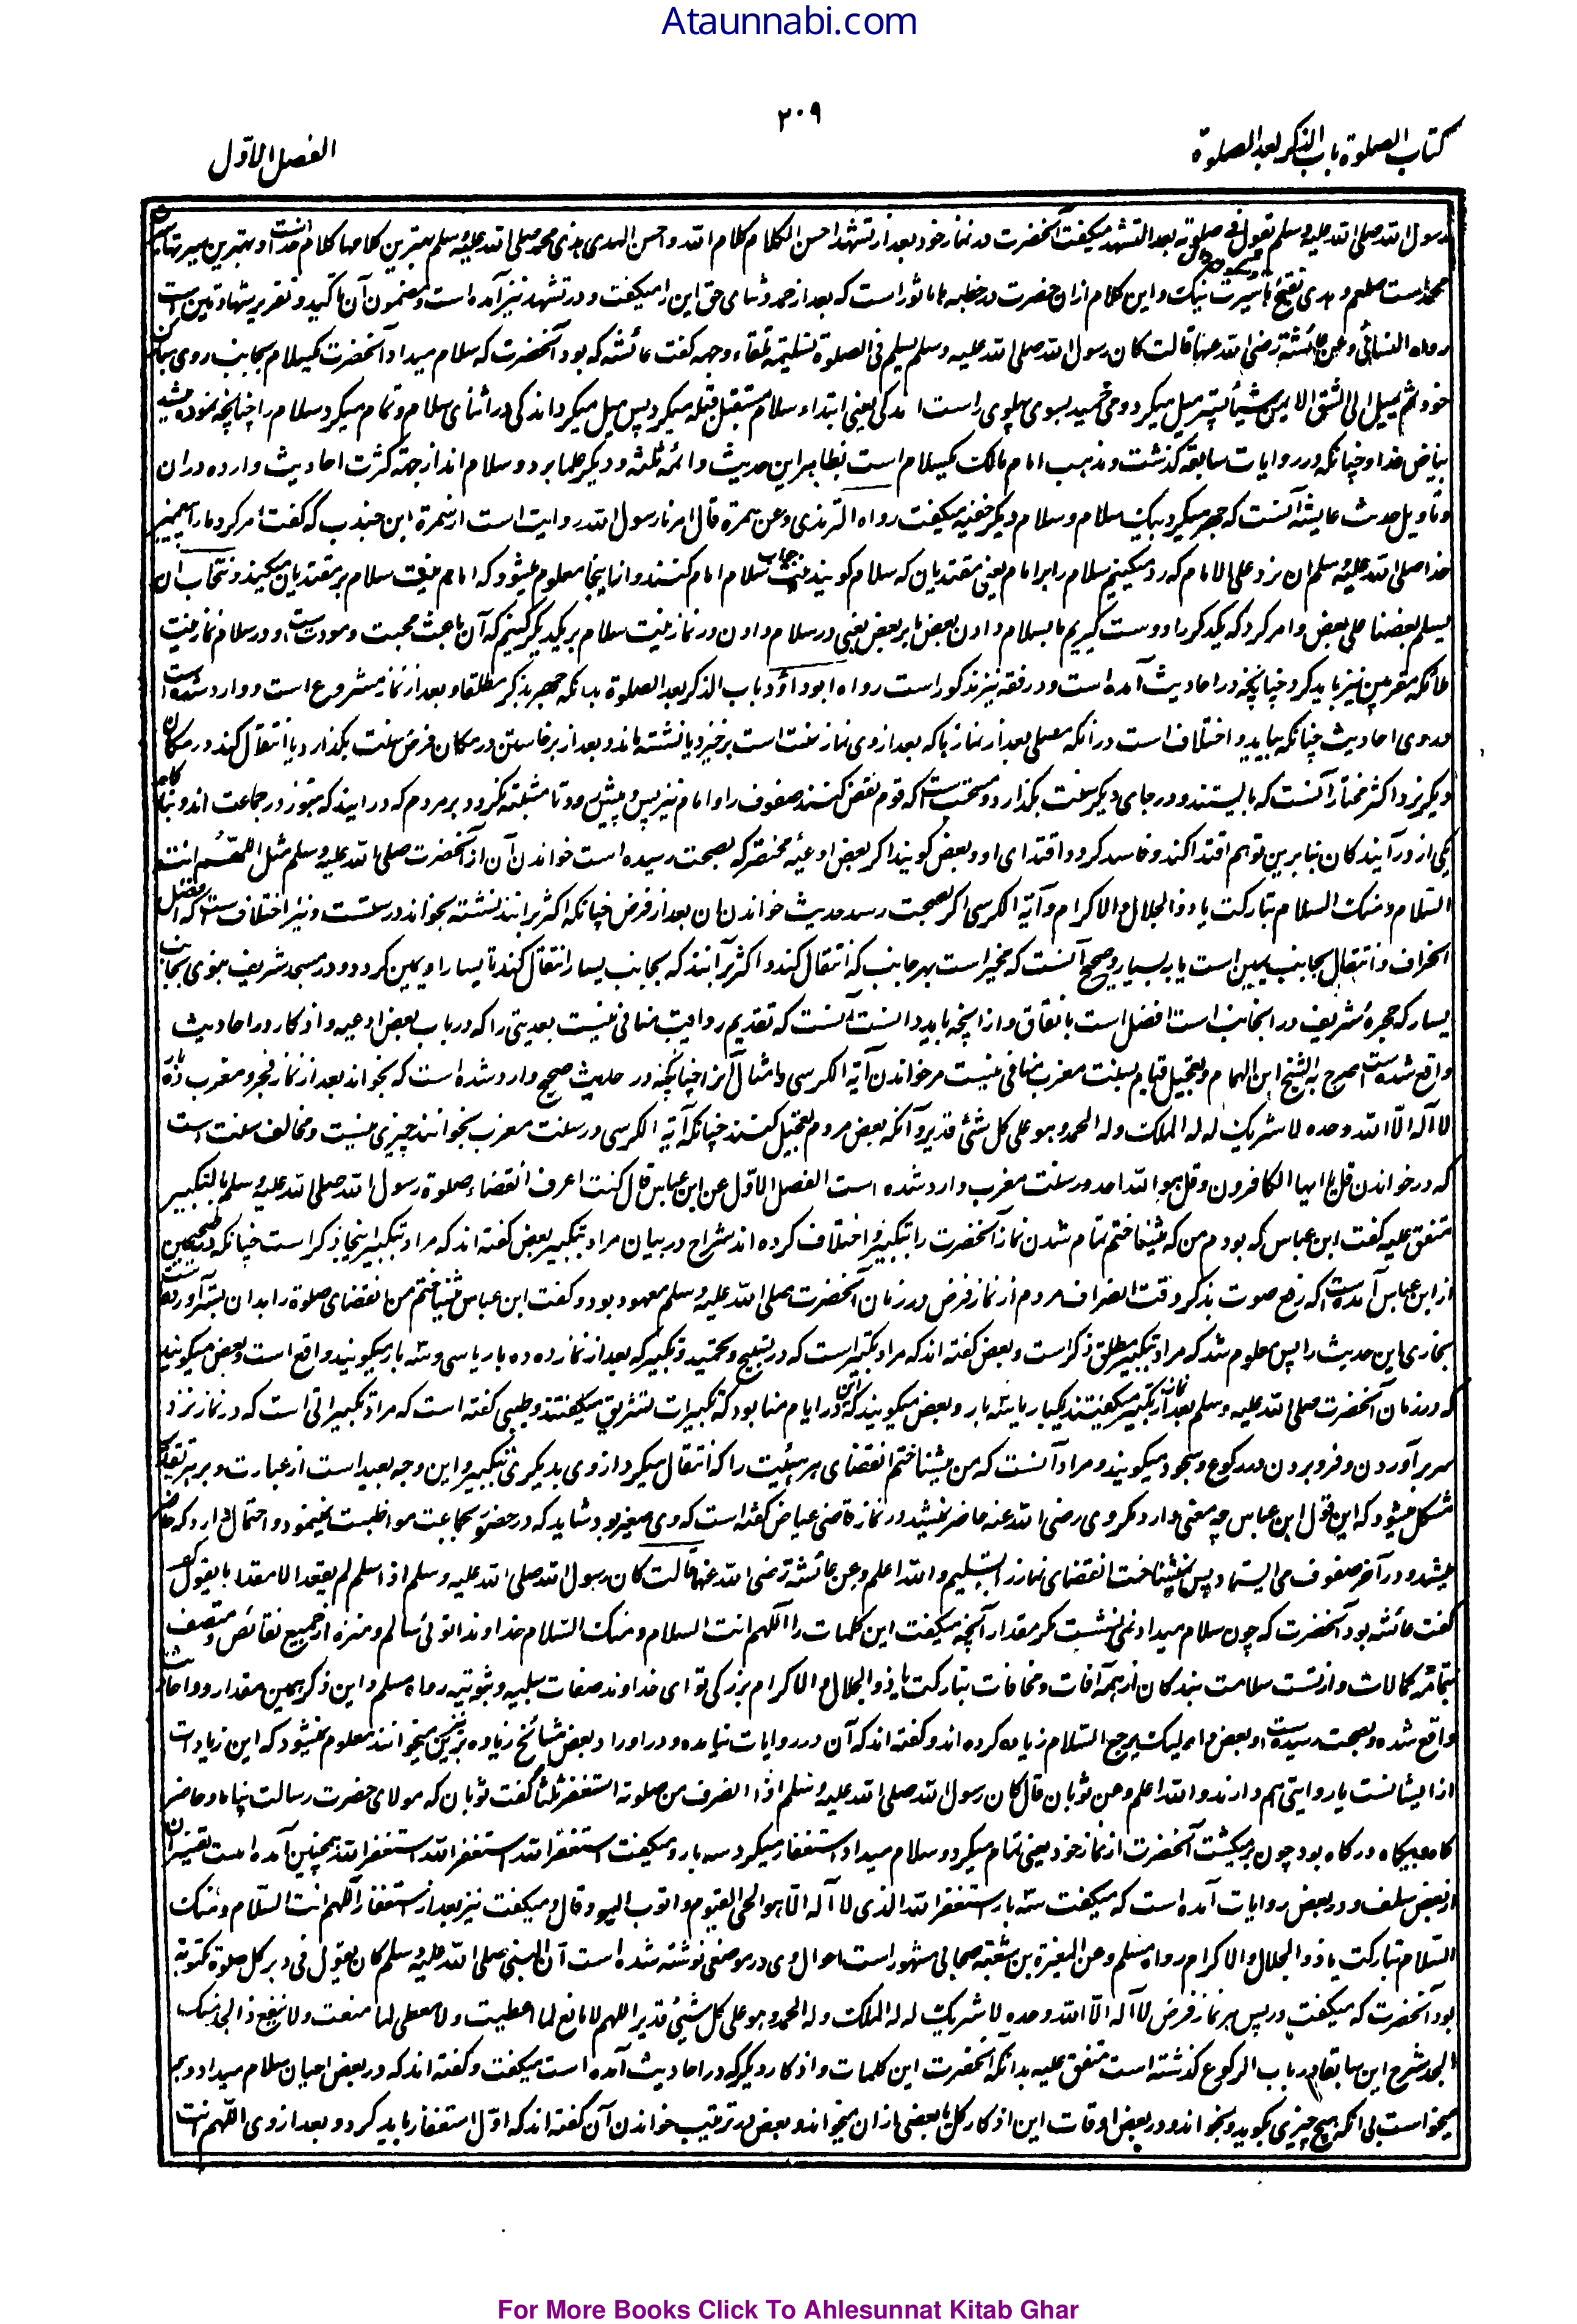 Ataunnabi.com
۲۰۹
كتاب الصلوة باب الذكر بعد الصلوة
الفصل الاوّل
رسول الله صلى الله عليه وسلم يقول فى صلوته بعد التشهد ميكفت آنحضرت در نماز خود بعد از تشهد احسن الكلام كلام الله و احسن الهدى هدى محمد صلى الله عليه وسلم بهترين كلامها كلام خداست و بهترين سيرتها
محمد است صلعم و هدى بفتح ها سيرت نيك و اين كلام ازان حضرت در خطبه ها ماثور است كه بعد از حمد و ثناى حق اين را ميكفت و در تشهد نيز آمده است و مضمون آن تاكيد و تقرير شهادتين است
رواه النسائى وعن عائشة رضى الله عنها قالت كان رسول الله صلى الله عليه وسلم يسلم فى الصلوة تسليمة تلقاء وجهه كفت عائشه كه بود آنحضرت كه سلام ميداد آنحضرت يكسلام بجانب روى مبارك
خود ثم يميل الى الشق الايمن شيئا پستر ميل ميكرد و مى خميد بسوى پهلوى راست اندكى يعنى ابتداء سلام مستقبل قبله ميكرد پس ميل ميكرد اندكى در اثناى سلام و تمام ميكرد سلام را چنانچه نموده ميشد
بياض خد او چنانكه در روايات سابقه كذشت و مذهب امام مالك يكسلام است بظاهر اين حديث و ائمه ثلثه و ديكر علما بر دو سلام اند از جهة كثرت احاديث وارده دران
و تاويل حديث عايشه آنست كه جهر ميكرد بيك سلام و سلام ديكر خفيه ميكفت رواه الترمذى وعن سمرة قال امرنا رسول الله روايت است از سمرة ابن جندب كه كفت امر كرد ما را پيغمبر
خدا صلى الله عليه وسلم ان نرد على الامام كه رد ميكنيم سلام را بر امام يعنى مقتديان كه سلام كويند نيت جواب سلام امام كنند و ازاينجا معلوم ميشود كه امام نيت سلام بر مقتديان ميكند و نتحاب ان
يسلم بعضنا على بعض و امر كرد كه يكديكر را دوست كيريم ما بسلام دادن بعض ما بر بعض يعنى در سلام دادن در نماز نيت سلام بر يكديكر كنيم كه آن باعث محبت و مودت است و در سلام نماز نيت
ملائكه مقربين نيز بايد كرد چنانچه در احاديث آمده است و در فقه نيز مذكور است رواه ابو داؤد باب الذكر بعد الصلوة بدانكه جهر بذكر مطلقا و بعد از نماز مشروع است و وارد شده است
در وى احاديث چنانكه بيايد و اختلاف است درانكه مصلى بعد از نماز يا كه بعد از وى نماز سنت است برخيزد يا نشسته ماند و بعد از برخاستن در مكان فرض سنت بكذارد يا انتقال كند در مكان
ديكر نزد اكثر مختار آنست كه بايستند و در جاى ديكر سنت بكذارد و مستحب است كه قوم نقض كنند صفوف را و امام نيز پس و پيش رود تا مشتبه نكردد بر مردم كه درايند كه هنوز در جماعت اند و تا كاه
يكى از درآيندكان بنا برين توهم اقتدا كند و فاسد كردد اقتداى او و بعض كويند اكر بعض ادعيه مختصر كه بصحت رسيده است خواندن آن از آنحضرت صلى الله عليه وسلم مثل اللهم انت
السلام و منك السلام تباركت يا ذو الجلال و الاكرام و آية الكرسى اكر بصحت رسد حديث خواندن آن بعد از فرض چنانكه اكثر برانند نشسته بخواند درست است و نيز اختلاف است كه افضل
انحراف و انتقال بجانب يمين است يا بيسار و صحيح آنست كه مخير است بهر جانب كه انتقال كند و اكثر برآنند كه بجانب يسار انتقال كند تا يسار او يمين كردد و در مسجد شريف نبوى بجانب
يسار كه حجرهٔ شريف در انجانب است افضل است باتفاق و ازانچه بايد دانست آنست كه تقديم رواتب منافى نيست بعديتى را كه در باب بعض ادعيه و اذكار در احاديث
واقع شده است صرح به الشيخ ابن الهمام و تعجيل قيام بسنت مغرب منافى نيست مر خواندن آية الكرسى و امثال آنرا چنانچه در حديث صحيح وارد شده است كه بخواند بعد از نماز فجر و مغرب ده بار
لا اله الا الله وحده لا شريك له له الملك وله الحمد وهو على كل شئ قدير و آنكه بعض مردم تعجيل كنند چنانكه آية الكرسى در سنت مغرب بخوانند چيزى نيست و مخالف سنت است
كه در خواندن قل يا ايها الكافرون و قل هو الله احد در سنت مغرب وارد شده است الفصل الاوّل عن ابن عباس قال كنت اعرف انقضاء صلوة رسول الله صلى الله عليه وسلم بالتكبير
متفق عليه كفت ابن عباس كه بودم من كه ميشناختم تمام شدن نماز آنحضرت را بتكبير و اختلاف كرده اند شراح در بيان مراد بتكبير بعض كفته اند كه مراد بتكبير اينجا ذكر است چنانكه در صحيحين
از ابن عباس آمده است كه رفع صوت بذكر وقت انصراف مردم از نماز فرض در زمان آنحضرت صلى الله عليه وسلم معهود بود و كفت ابن عباس ميشناختم من انقضاى صلوة را بدان پستر آورده است
بخارى اين حديث را پس معلوم شد كه مراد بتكبير مطلق ذكر است و بعض كفته اند كه مراد تكبير است كه در تسبيح و تحميد و تكبير كه بعد از نماز ده ده بار يا سى و سه بار ميكويند واقع است و بعض ميكويند
كه در زمان آنحضرت صلى الله عليه وسلم بعد از نماز تكبير ميكفتند يكبار يا سه بار و بعض ميكويند كه اين در ايام منا بود كه تكبيرات تشريق ميكفتند و طيبى كفته است كه مراد تكبيراتى است كه در نماز نزد
سر برآوردن و فرو بردن در ركوع و سجود ميكويند و مراد آنست كه من ميشناختم انقضاى هر هيئت را كه انتقال ميكرد از وى بديكرى بتكبير و اين وجه بعيد است از عبارت و بر هر تقدير
مشكل ميشود كه اين قول ابن عباس چه معنى دارد مكر وى رضى الله عنه حاضر نميشد در نماز قاضى عياض كفته است كه وى صغير بود شايد كه در حضور بجماعت مواظبت نمينمود و احتمال دارد كه حاضر
ميشد و در آخر صفوف مى ايستاد پس نميشناخت انقضاى نماز را بتسليم و الله اعلم وعن عائشة رضى الله عنها قالت كان رسول الله صلى الله عليه وسلم اذا سلم لم يقعد الا مقدار ما يقول
كفت عائشه بود آنحضرت كه چون سلام ميداد نمى نشست مكر مقدار آنچه ميكفت اين كلمات را اللهم انت السلام و منك السلام خداوندا توئى سالم و منزه از جميع نقائص و متصف
بتمامهٔ كمالات و از تست سلامت بندكان از همه آفات و مخافات تباركت يا ذو الجلال و الاكرام بزركى تو اى خداوند صفات سلبيه و ثبوتيه رواه مسلم و اين ذكر همين مقدار در احاديث
واقع شده و بصحت رسيده است و بعض و اليك يرجع السلام زياده كرده اند و كفته اند كه آن در روايات نيامده و در اوراد بعض مشائخ زياده برين نيز ميخوانند معلوم نميشود كه اين زيادت
از ايشانست يا روايتى هم دارند و الله اعلم وعن ثوبان قال كان رسول الله صلى الله عليه وسلم اذا انصرف من صلوته استغفر ثلثا كفت ثوبان كه مولاى حضرت رسالت پناه و حاضر
كاه و بيكاه دركاه بود چون برميكشت آنحضرت از نماز خود يعنى تمام ميكرد و سلام ميداد استغفار ميكرد سه بار و ميكفت استغفر الله استغفر الله استغفر الله همچنين آمده است تفسير آن
از بعض سلف و در بعض روايات آمده است كه ميكفت سه بار استغفر الله الذى لا اله الا هو الحى القيوم و اتوب اليه و قال و ميكفت نيز بعد از استغفار اللهم انت السلام و منك
السلام تباركت يا ذو الجلال و الاكرام رواه مسلم وعن المغيرة بن شعبة صحابى مشهور است احوال وى در موضعى نوشته شده است ان النبى صلى الله عليه وسلم كان يقول فى دبر كل صلوة مكتوبة
بود آنحضرت كه ميكفت در پس هر نماز فرض لا اله الا الله وحده لا شريك له له الملك وله الحمد وهو على كل شيئ قدير اللهم لا مانع لما اعطيت ولا معطى لما منعت ولا ينفع ذا الجد منك
الجد شرح اين سابقا در باب الركوع كذشته است متفق عليه بدانكه آنحضرت اين كلمات و اذكار ديكر كه در احاديث آمده است ميكفت و كفته اند كه در بعض احيان سلام ميداد و بر
ميخواست بى انكه هيچ چيزى بكويد و بخواند و در بعض اوقات اين اذكار كل يا بعضى ازان ميخواند و بعض در ترتيب خواندن آن كفته اند كه اوّل استغفار بايد كرد و بعد از وى اللهم انت
For More Books Click To Ahlesunnat Kitab Ghar